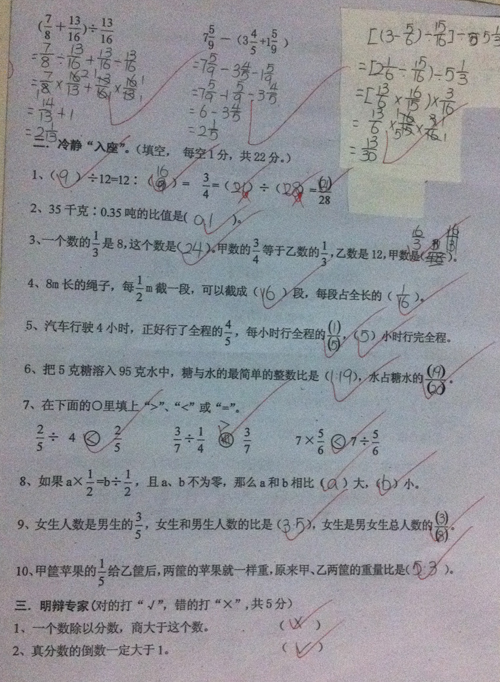 (7/8 + 13/16) ÷ 13/16
7 5/9 － (3 4/5 + 1 5/9)
[(3 - 5/6) ÷ 15/16] ÷ 5 1/3
= 7/8 ÷ 13/16 + 13/16 ÷ 13/16
= 7 5/9 - 3 4/5 - 1 5/9
= [2 1/6 ÷ 15/16) ÷ 5 1/3
= 7/8 × 16/13 + 13/16 × 16/13
= 7 5/9 - 1 5/9 - 3 4/5
= [13/6 × 16/15) × 3/16
= 14/13 + 1
= 6 - 3 4/5
= 13/6 × 16/15 × 3/16
= 2 1/13
= 2 1/5
= 13/30
二．冷静“入座”。(填空， 每空 1 分，共 22 分。)
1、( 9 ) ÷12=12：( 16 ) = 3/4 =( 20 ) ÷ ( 28 ) = (21)/28
2、35 千克：0.35 吨的比值是( 0.1 )。
3、一个数的 1/3 是 8,这个数是( 24 )。甲数的 3/4 等于乙数的 1/3 ,乙数是 12,甲数是( 16/3 )。
4、8m 长的绳子，每 1/2 m 截一段，可以截成（ 16 ）段，每段占全长的（ 1/16 ）。
5、汽车行驶 4 小时，正好行了全程的 4/5 ，每小时行全程的 (1)/(5) ，( 5 ) 小时行完全程。
6、把 5 克糖溶入 95 克水中，糖与水的最简单的整数比是（ 1:19 )，水占糖水的 (19)/(20) 。
7、在下面的○里填上“>”、“<”或“=”。
2/5 ÷ 4 < 2/5 3/7 ÷ 1/4 > 3/7 7× 5/6 < 7÷ 5/6
8、如果 a× 1/2 =b÷ 1/2 ，且 a、b 不为零，那么 a 和 b 相比（ a ）大，（ b ）小。
9、女生人数是男生的 3/5 ，女生和男生人数的比是（ 3:5 )，女生是男女生总人数的 (3)/(8) 。
10、甲筐苹果的 1/5 给乙筐后，两筐的苹果就一样重，原来甲、乙两筐的重量比是( 5:3 )。
三．明辩专家(对的打“√”，错的打“×”，共 5 分)
1、一个数除以分数，商大于这个数。 （ × ）
2、真分数的倒数一定大于 1。 （ √ ）